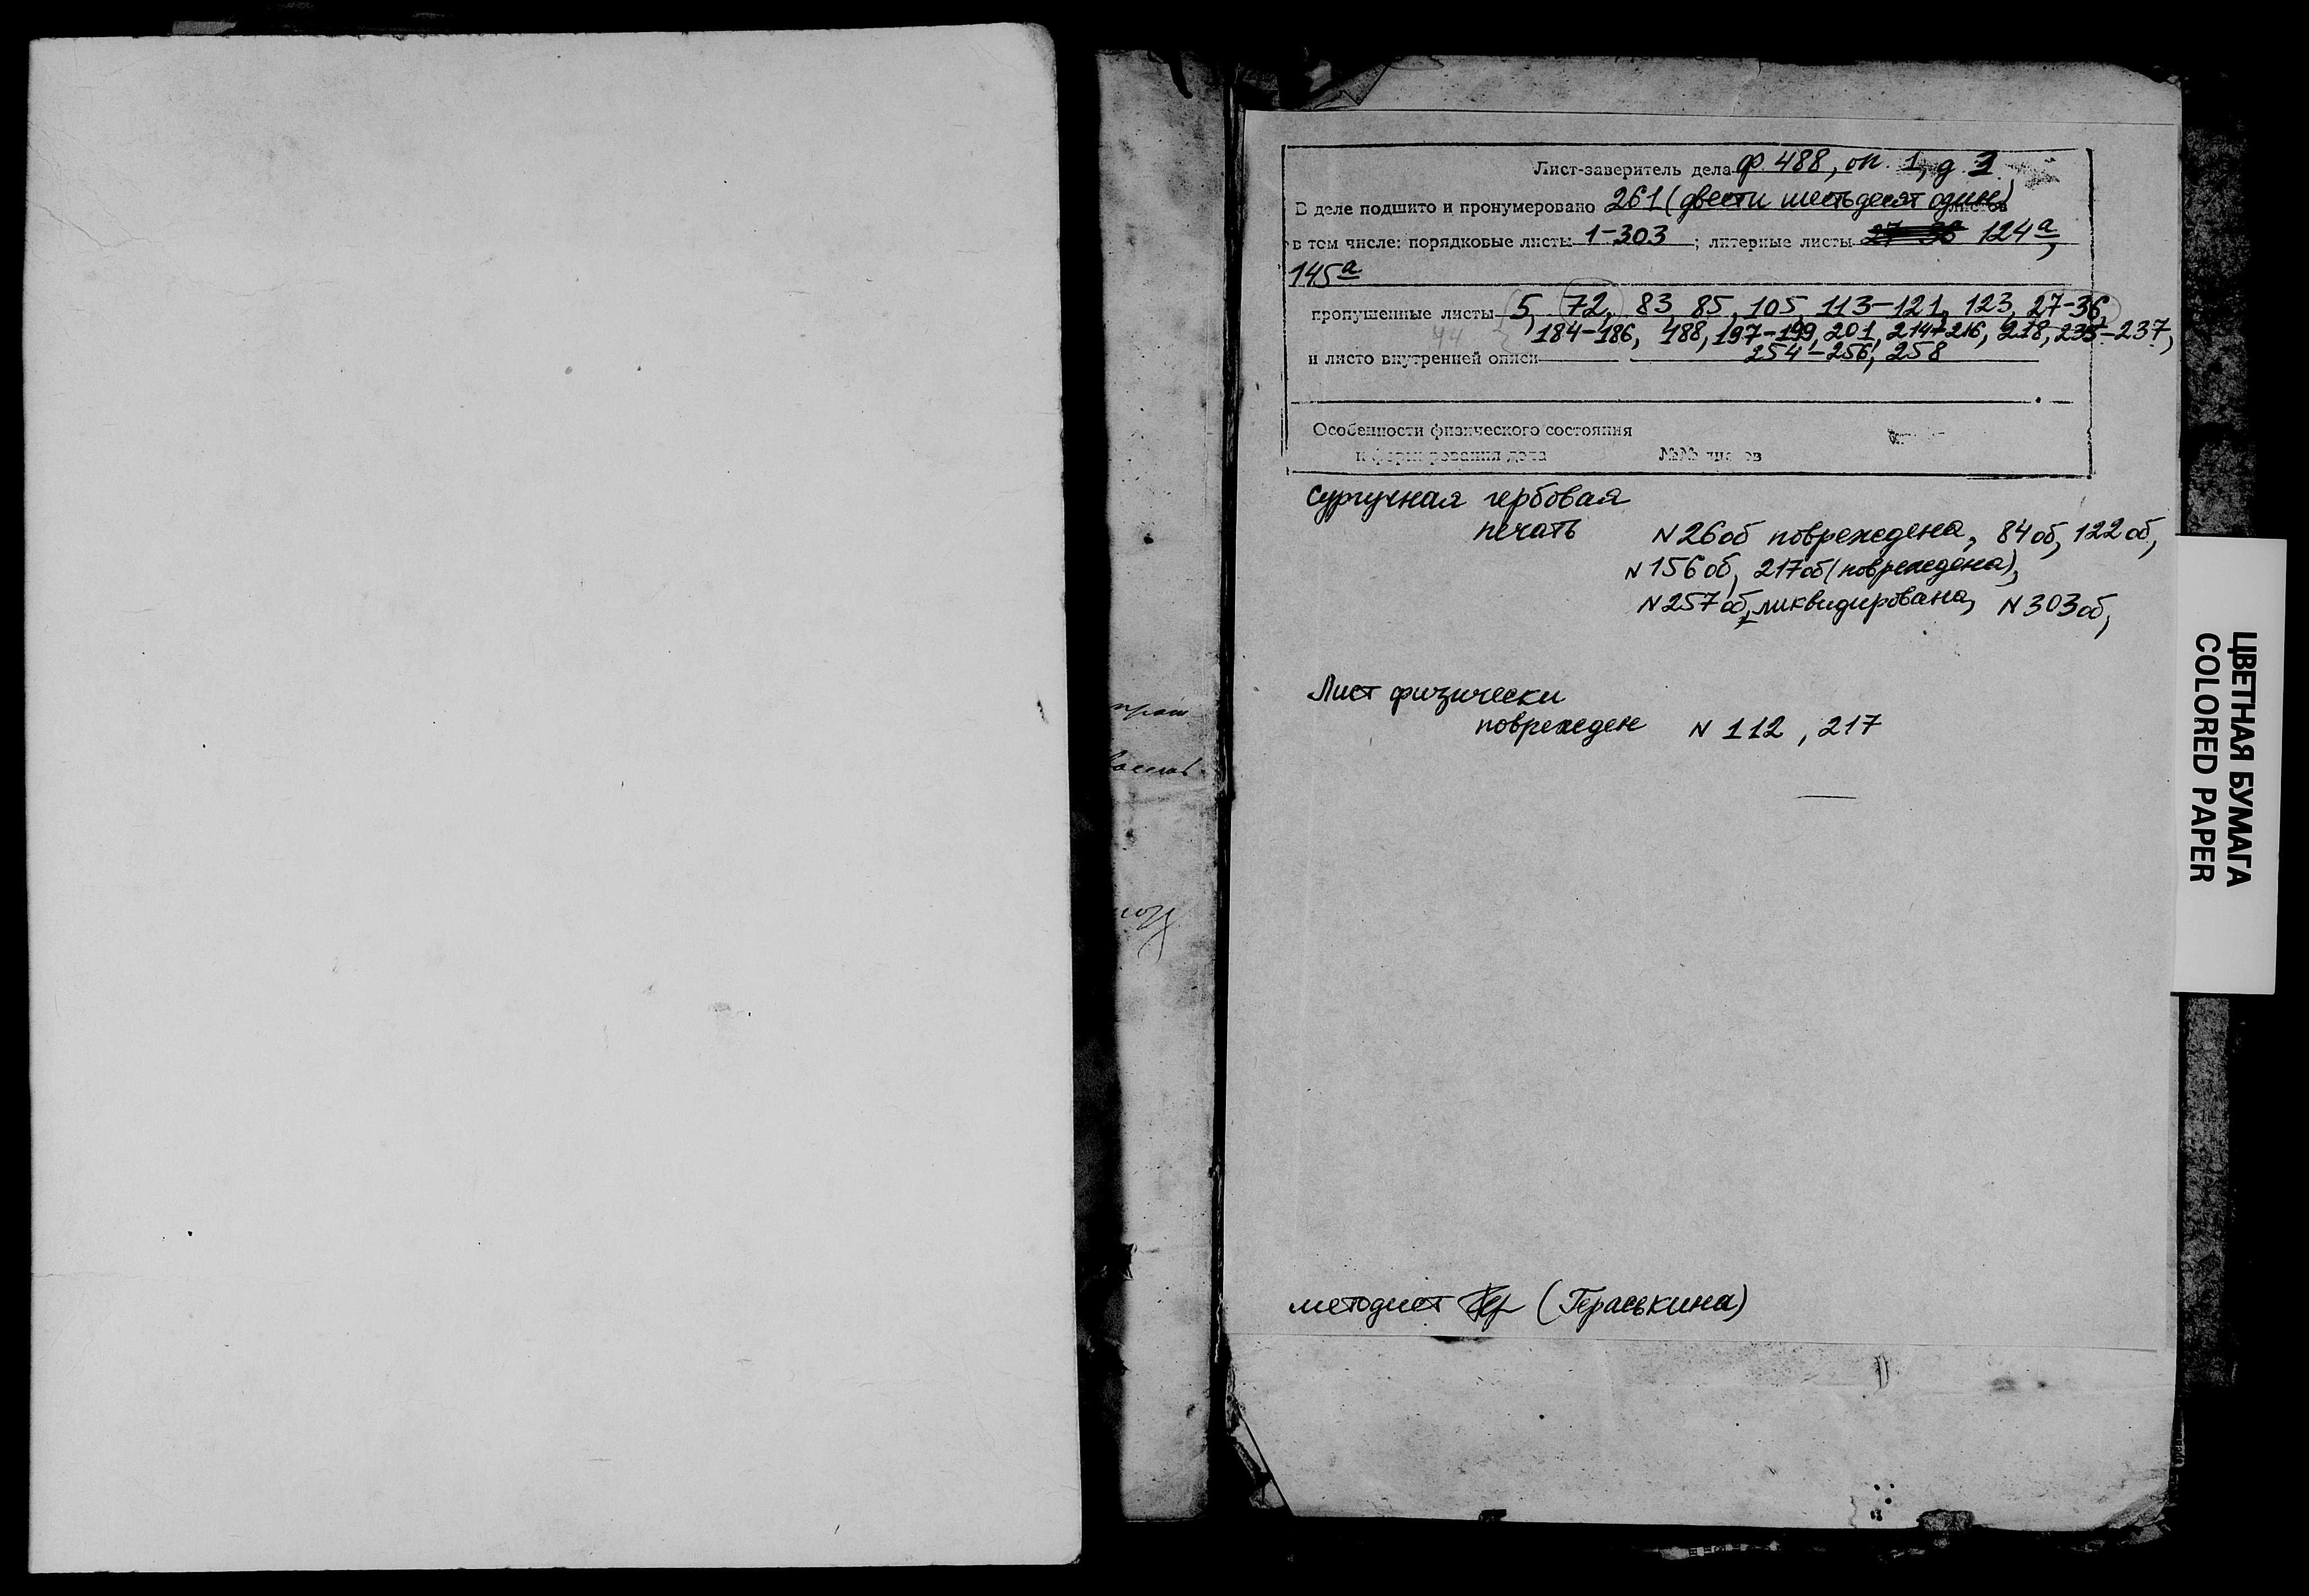 Лист-заверитель дела ф. 488, оп. 1, д. 3
В деле подшито и пронумеровано 261 (двести шестьдесят один) листов
в том числе: порядковые листы 1-303 ; литерные листы 124а,
145а
пропущенные листы 5, 72, 83, 85, 105, 113-121, 123, 27-36,
44 184-186, 188, 197-199, 201, 214-216, 218, 235-237,
и листо внутренней описи 254-256, 258
Особенности физического состояния
и формирования дела №№ листов
Сургучная гербовая
печать N 26 об повреждена, 84 об, 122 об,
N 156 об, 217 об (повреждена),
N 257 об, ликвидирована, N 303 об,
Лист физически
поврежден N 112, 217
методист (Гераськина)
ЦВЕТНАЯ БУМАГА
COLORED PAPER